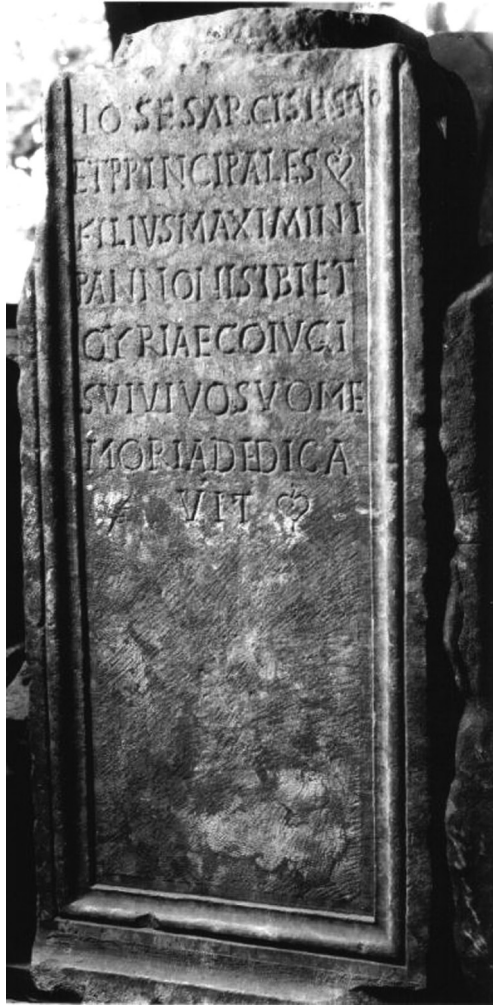 IOSES ARCISHSAO
ET PRINCIPALES ❦
FILIUS MAXIMINI
PANNONII SIBI ET
CYRIAE COIVGI
SVI VIVO SVO ME
MORIA DEDICA
VIT ❦